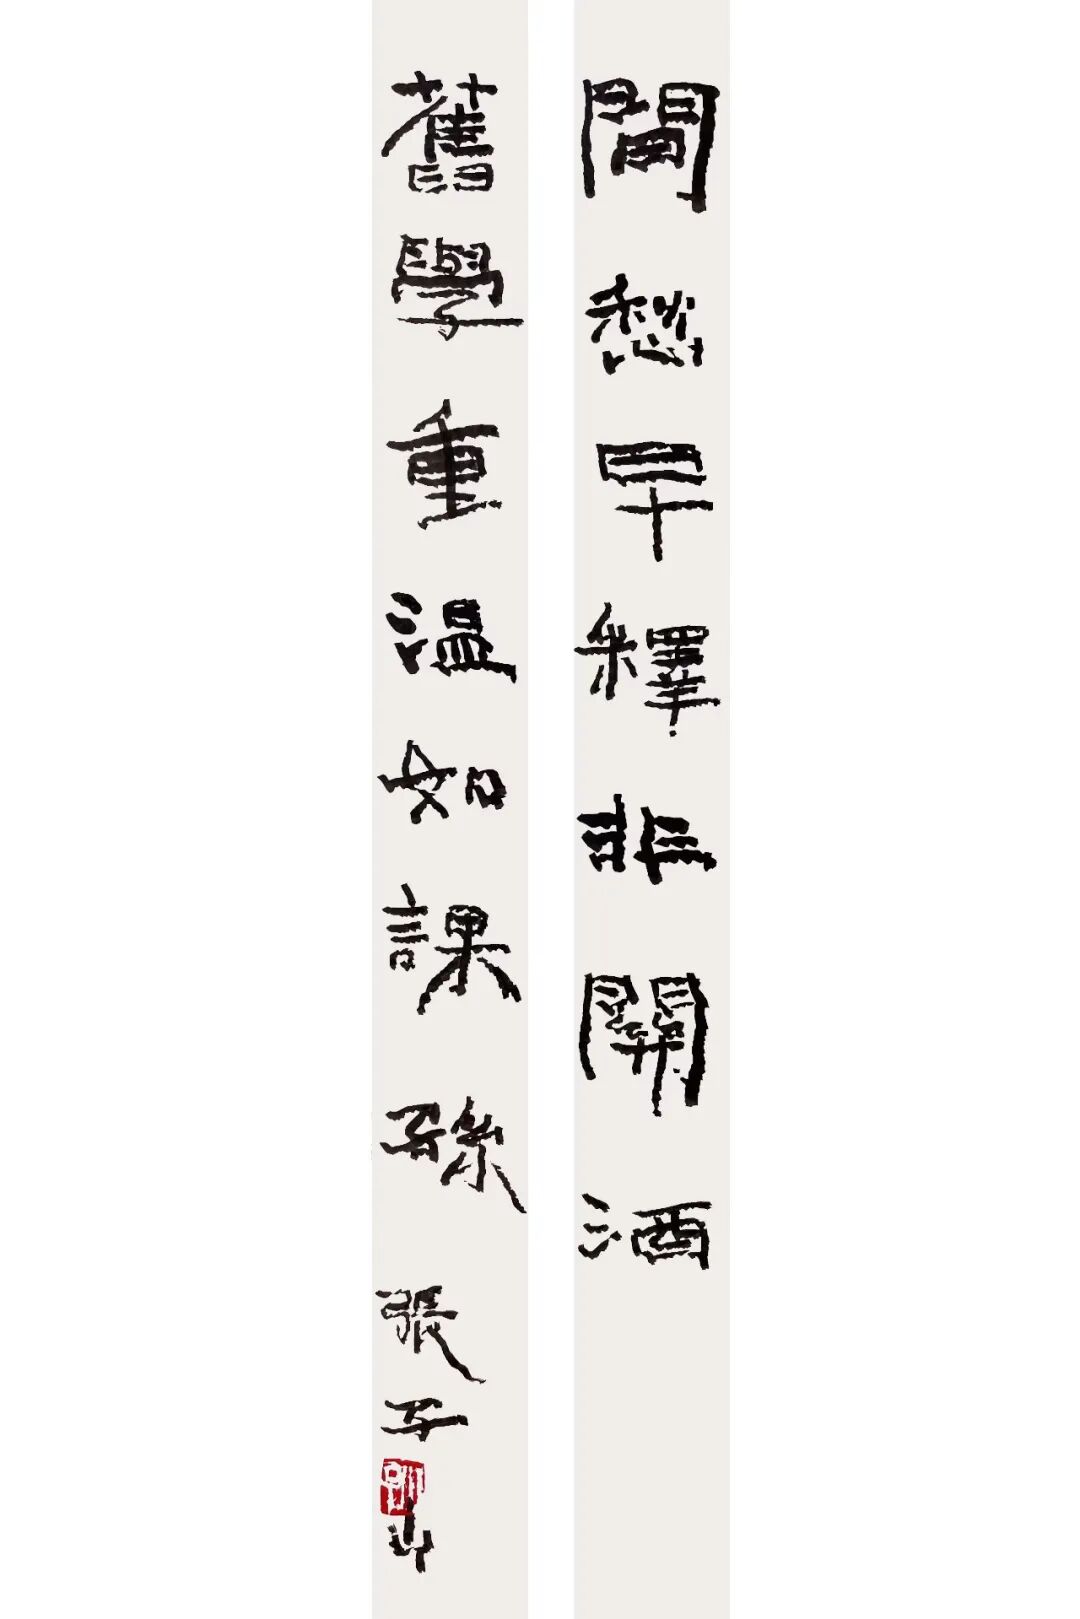 閒愁早釋非關酒
舊學重溫如課孫
張子山